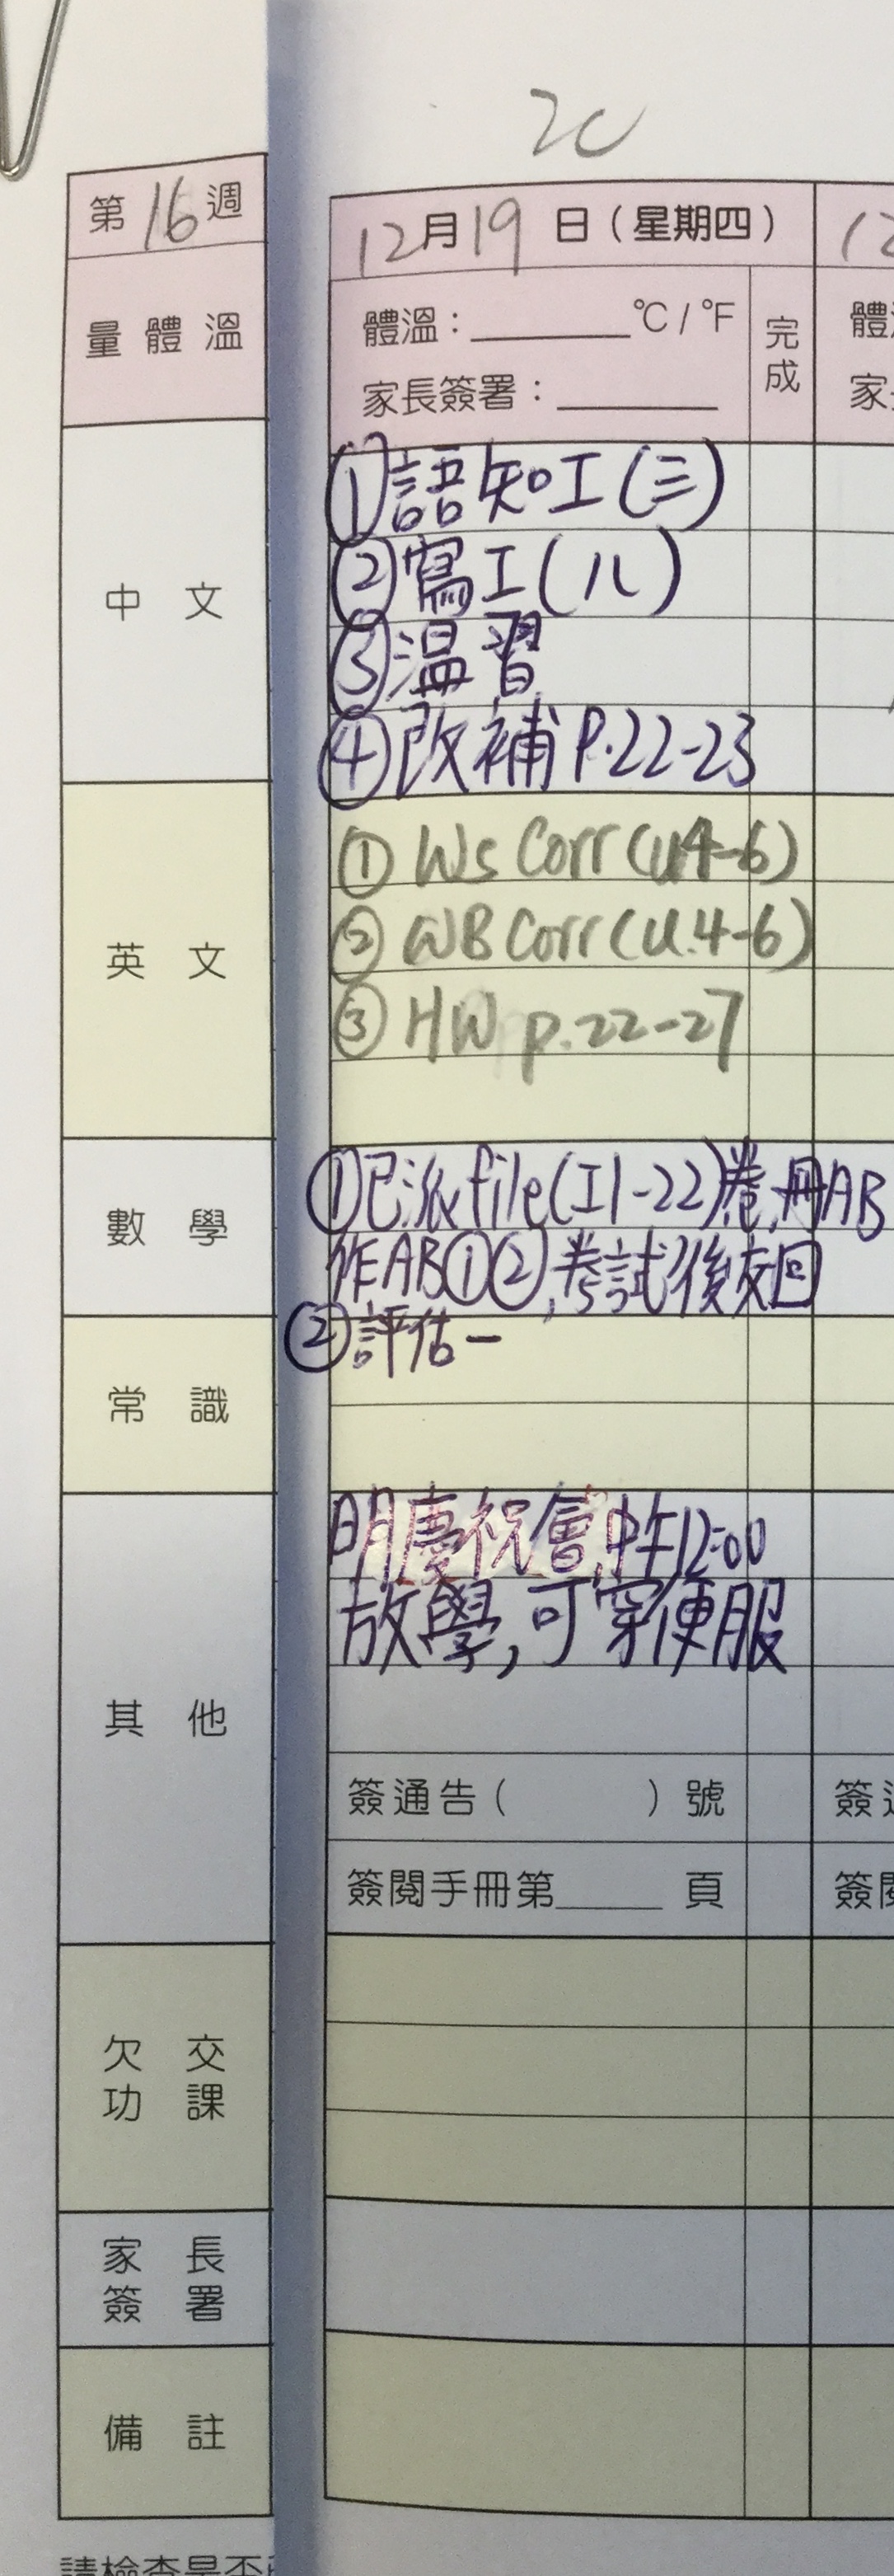 2C
第16週
12月19日(星期四)
量體溫
體溫：______℃/℉
完成
家長簽署：______
中文
①語知工(三)
②寫工(八)
③温習
④改補 P.22-23
英文
① WS Corr(u4-6)
② WB Corr(u.4-6)
③ HW p.22-27
數學
①已派file(工1-22)卷,冊AB
作AB①②,考試後交回
②評估一
常識
其他
明慶祝會,中午12:00
放學,可穿便服
簽通告(　　　)號
簽閱手冊第______頁
欠交功課
家長簽署
備註
請檢查是否